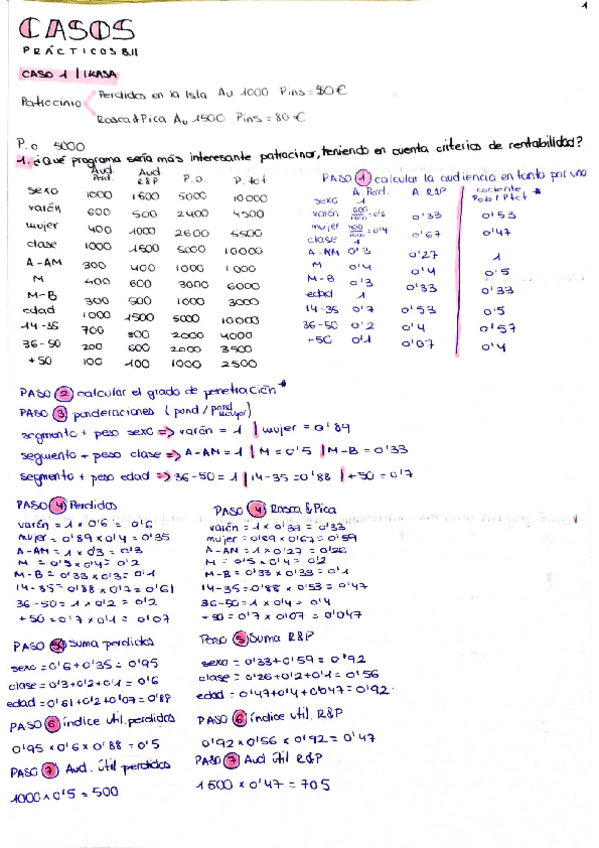 1
CASOS
PRÁCTICOS 8.11
CASO 1 | IKASA
Patrocinio
Perdidos en la Isla Au 1000 Pins = 80€
Rosca&Pica Au 1500 Pins = 80€
P.o 5000
1. ¿Qué programa sería más interesante patrocinar, teniendo en cuenta criterios de rentabilidad?
Aud Perd. Aud R&P P.O. P. tot
sexo 1000 1500 5000 10000
varón 600 500 2400 4500
mujer 400 1000 2600 5500
clase 1000 1500 5000 10000
A-AM 300 400 1000 1000
M 400 600 3000 6000
M-B 300 500 1000 3000
edad 1000 1500 5000 10000
14-35 700 800 2000 4000
36-50 200 600 2000 3500
+50 100 100 1000 2500
PASO 1 calcular la audiencia en tanto por uno
A. Perd. A. R&P cociente Pob/Ptot *
sexo 1
varón 600/1000 = 0'6 0'33 0'53
mujer 400/1000 = 0'4 0'67 0'47
clase 1
A-AM 0'3 0'27 1
M 0'4 0'4 0'5
M-B 0'3 0'33 0'33
edad 1
14-35 0'7 0'53 0'5
36-50 0'2 0'4 0'57
+50 0'1 0'07 0'4
PASO 2 calcular el grado de penetración *
PASO 3 ponderaciones (pond/pond mayor)
segmento + peso sexo => varón = 1 | mujer = 0'89
segmento + peso clase => A-AM = 1 | M = 0'5 | M-B = 0'33
segmento + peso edad => 36-50 = 1 | 14-35 = 0'88 | +50 = 0'7
PASO 4 Perdidos
varón = 1 x 0'6 = 0'6
mujer = 0'89 x 0'4 = 0'35
A-AM = 1 x 0'3 = 0'3
M = 0'5 x 0'4 = 0'2
M-B = 0'33 x 0'3 = 0'1
14-35 = 0'88 x 0'7 = 0'61
36-50 = 1 x 0'2 = 0'2
+50 = 0'7 x 0'1 = 0'07
PASO 4 Rosca & Pica
varón = 1 x 0'33 = 0'33
mujer = 0'89 x 0'67 = 0'59
A-AN = 1 x 0'27 = 0'26
M = 0'5 x 0'4 = 0'2
M-B = 0'33 x 0'33 = 0'1
14-35 = 0'88 x 0'53 = 0'47
36-50 = 1 x 0'4 = 0'4
+50 = 0'7 x 0'07 = 0'047
PASO 5 Suma perdidos
sexo = 0'6 + 0'35 = 0'95
clase = 0'3 + 0'2 + 0'1 = 0'6
edad = 0'61 + 0'2 + 0'07 = 0'88
Paso 5 Suma R&P
sexo = 0'33 + 0'59 = 0'92
clase = 0'26 + 0'2 + 0'1 = 0'56
edad = 0'47 + 0'4 + 0'047 = 0'92
PASO 6 índice util. perdidos
0'95 x 0'6 x 0'88 = 0'5
PASO 6 índice util. R&P
0'92 x 0'56 x 0'92 = 0'47
PASO 7 Aud. útil perdidos
1000 x 0'5 = 500
PASO 7 Aud útil R&P
1500 x 0'47 = 705